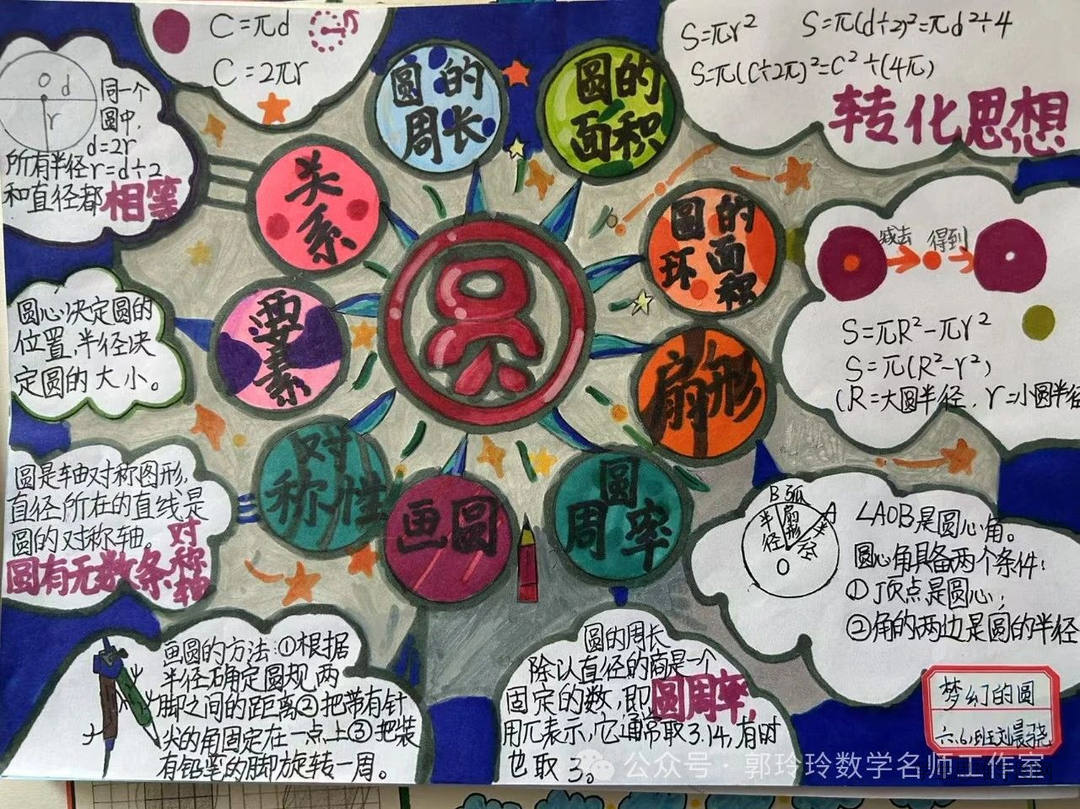 C=πd
C=2πr
O d
r
同一个
圆中,
d=2r
所有半径r=d÷2
和直径都相等
关系
圆的
周长
圆的
面积
S=πr² S=π(d÷2)²=πd²÷4
S=π(C÷2π)²=C²÷(4π)
转化思想
圆的
环面积
减去 得到
S=πR²-πr²
S=π(R²-r²)
(R=大圆半径,r=小圆半径
圆心决定圆的
位置,半径决
定圆的大小。
要素
圆
扇形
圆是轴对称图形,
直径所在的直线是
圆的对称轴。
圆有无数条对称轴
对
称性
画圆
圆
周率
B 弧 A
半径 扇形 半径
O
∠AOB是圆心角。
圆心角具备两个条件:
①顶点是圆心;
②角的两边是圆的半径
画圆的方法:①根据
半径确定圆规两
脚之间的距离②把带有针
尖的角固定在一点上③把装
有铅笔的脚旋转一周。
圆的周长
除以直径的商是一个
固定的数,即圆周率,
用π表示,它通常取3.14,有时
也取3。
梦幻的圆
六.6.1班刘晨骁
公众号·郭玲玲数学名师工作室